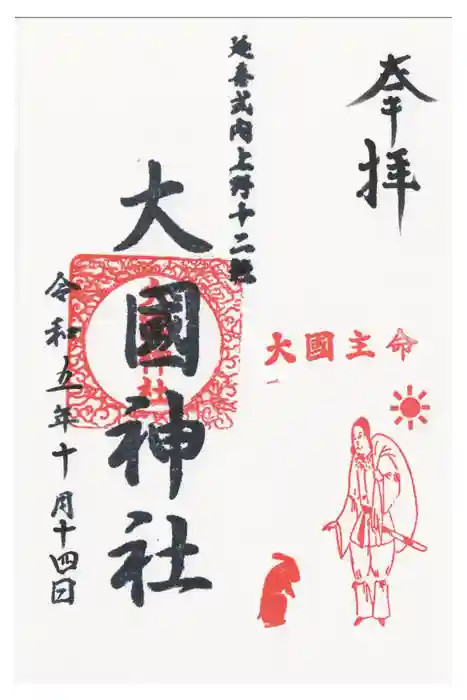 奉拝
延喜式内上野十二社
大國主命
大國神社
令和五年十月十四日